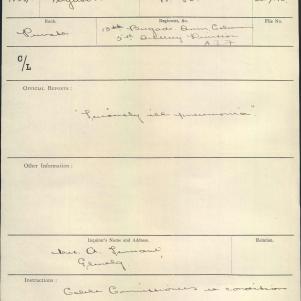 Rank.
Regiment, &c.
File No.
Private
13th Brigade Amm. Column
5th Artillery Division
A I F
C/L
OFFICIAL REPORTS:
"Seriously ill pneumonia"
Other Information:
Inquirer's Name and Address.
Relation.
Mrs A.
Glenelg
Instructions:
Cable Commissioners re condition